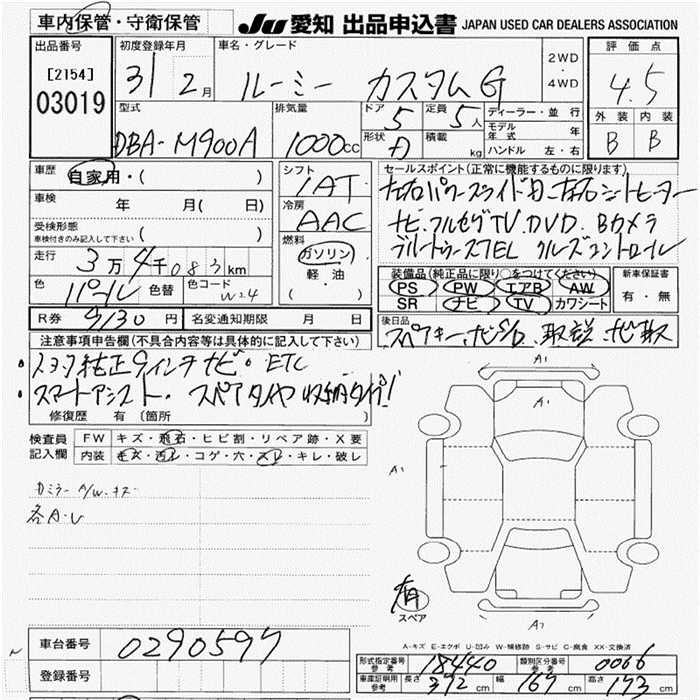 車内保管・守衛保管 JU 愛知 出品申込書 JAPAN USED CAR DEALERS ASSOCIATION
出品番号 初度登録年月 車名・グレード 2WD・4WD 評価点
[2154] 31 2月 ルーミー カスタムG 4.5
03019 型式 排気量 ドア 5 定員 5人 ディーラー・並行 外装 内装
DBA-M900A 1000cc 形状 積載 kg モデル年式 年 B B
ハンドル 左・右
車歴 自家用・( ) シフト セールスポイント(正常に機能するものに限ります)
車検 年 月( 日) IAT 左右パワースライドD.左右シートヒーター
受検形態 冷房 ナビ.フルセグTV.DVD.Bカメラ
車検付きのみ記入して下さい ( ) AAC ブルートゥースTEL クルーズコントロール
走行 3万4千083km 燃料 ガソリン 装備品(純正品に限り○をつけてください) 新車保証書
色 パール 色替 色コード W24 軽・油 PS PW エアB AW 有・無
( ) SR ナビ TV カワシート
R券 9130円 名変通知期限 月 日 後日品 スペアキー、ナビSD、取説、ナビ取
注意事項申告欄(不具合内容等は具体的に記入して下さい)
トヨタ純正9インチナビ・ETC
スマートアシスト・スペアタイヤ収納タイプ!
修復歴 有 (箇所 )
検査員記入欄 FW キズ・飛石・ヒビ割・リペア跡・X要
内装 キズ・汚レ・コゲ・穴・スレ・キレ・破レ
A1
A1
A1
ミラー A/W.キズ
各A.U
有
スペア
A2
A-キズ E-エクボ U-凹み W-補修跡 S-サビ C-腐食 XX-交換済
車台番号 0290597
登録番号
形式指定番号 参考 18440 類別区分番号 参考 0066
車庫証明用 参考 長さ 372cm 幅 167cm 高さ 173cm